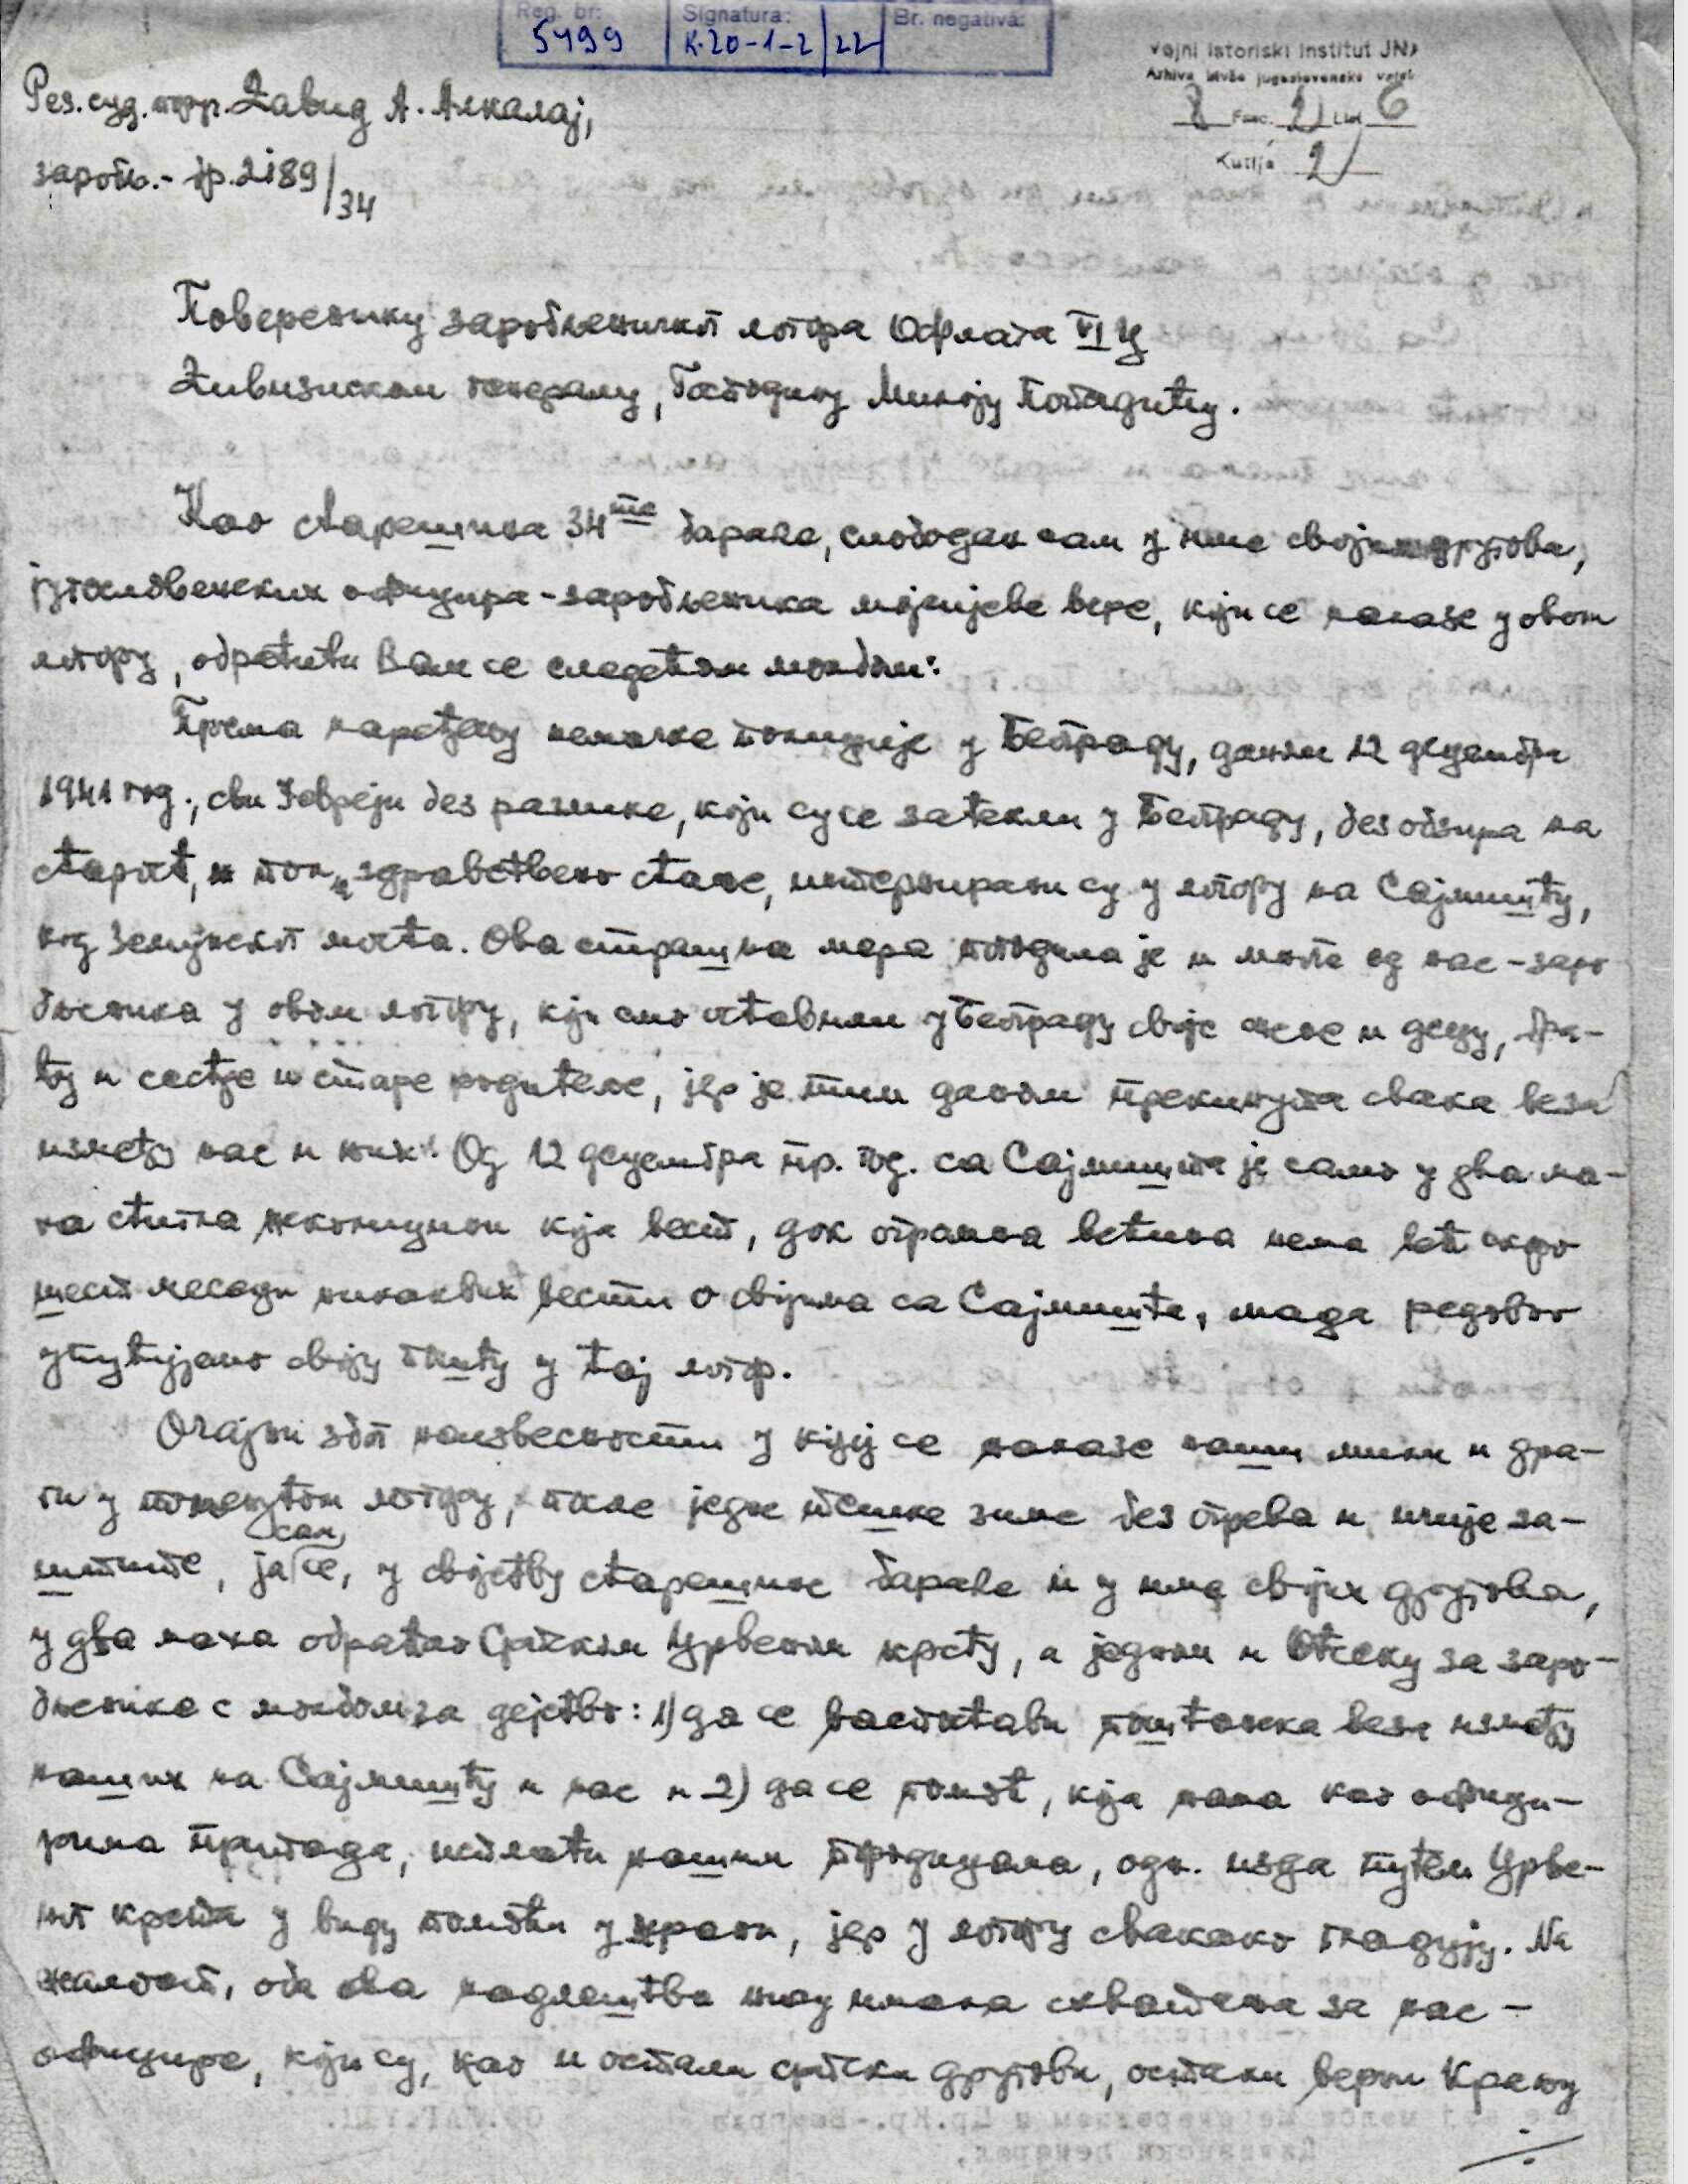 Reg. br: Signatura: Br. negativa:
5499 K-20-1-2/22
Vojni istoriski institut JNA
Arhiva bivše jugoslovenske vojske
8 Fasc. 2 List 6
Kutija 2
Рез. суд. пор. Давид А. Алкалај,
заробљ.- бр. 2189/34
Поверенику заробљеничког логора Офлага VI Ц
Дивизиском генералу, Господину Миноју
Као старешина 34те бараке, слободан сам у име својих другова,
југословенских официра-заробљеника мојсијеве вере, који се налазе у овом
логору, обратити Вам се следећом молбом:
Према наређењу немачке полиције у Београду, даном 12 децембра
1941 год., сви Јевреји без разлике, који су се затекли у Београду, без обзира на
старост, пол и здравствено стање, интернирани су у логору на Сајмишту,
код земунског моста. Ова страшна мера погодила је и многе од нас-заро
бљеника у овом логору, који смо оставили у Београду своје жене и децу, бра-
ћу и сестре и старе родитеље, јер је тим даном прекинута свака веза
између нас и њих. Од 12 децембра пр. год. са Сајмишта је само у два ма-
ха стигла неколицини која вест, док огромна већина нема већ скоро
шест месеци никаквих вести о својима са Сајмишта, мада редовно
упућујемо своју пошту у тај логор.
Очајни због неизвесности у којој се налазе наши мили и дра-
ги у поменутом логору, после једне тешке зиме без огрева и ичије за-
штите, ја сам се, у својству старешине бараке и у име својих другова,
у два маха обраћао Српском Црвеном крсту, а једном и Отсеку за заро-
бљенике с молбом за дејство: 1) да се васпостави поштанска веза између
наших на Сајмишту и нас и 2) да се помоћ, која нама као официр-
има припада, исплати нашим породицама, одн. изда путем Црве-
ног крста у виду помоћи у храни, јер у логору свакако гладују. На
жалост, оба ова надлештва нису имала схватања за нас -
официре, који су, као и остали српски другови, остали верни Краљу
./.